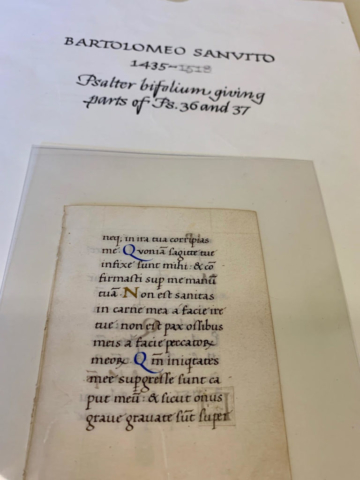 BARTOLOMEO SANVITO
1435–1518
Psalter bifolium, giving
parts of Ps. 36 and 37
neq, in ira tua corripias
me Quoniã sagitte tue
infixe sunt mihi: & cõ
firmasti sup me manũ
tuã Non est sanitas
in carne mea a facie ire
tue: non est pax ossibus
meis a facie peccatoꝝ
meoꝝ Qm̃ iniqtates
mee supgresse sunt ca
put meũ: & sicut onus
graue grauate sũt super